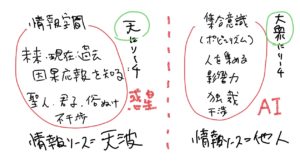 天にリーチ
情報空間
未来・現在・過去
因果応報を知る
聖人・君子・俗ぬけ
不干渉
惑星
情報ソース=天波
大衆にリーチ
集合意識
(ポピュリズム)
人を集める
影響力
独裁
干渉
AI
情報ソース=他人